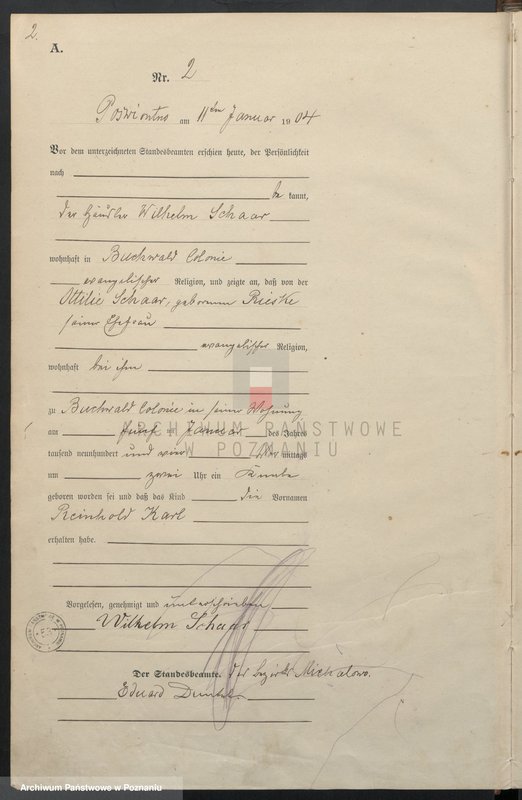 2.
A.
Nr. 2
am 11ten Januar 1904
Vor dem unterzeichneten Standesbeamten erschien heute, der Persönlichkeit
nach
be kannt,
der Händler Wilhelm Schaar
wohnhaft in Buchwald Colonie
evangelischer Religion, und zeigte an, daß von der
Ottilie Schaar, geborenen Rieske
seiner Ehefrau
evangelischer Religion,
wohnhaft bei ihm
zu Buchwald Colonie in seiner Wohnung
am fünf ten Januar des Jahres
tausend neunhundert und vier mittags
um zwei Uhr ein Knabe
geboren worden sei und daß das Kind die Vornamen
Reinhold Karl
erhalten habe.
Vorgelesen, genehmigt und unterschrieben
Wilhelm Schaar
Der Standesbeamte. des Bezirks Michalowo.
Eduard
ARCHIWUM PAŃSTWOWE
W POZNANIU
Archiwum Państwowe w Poznaniu